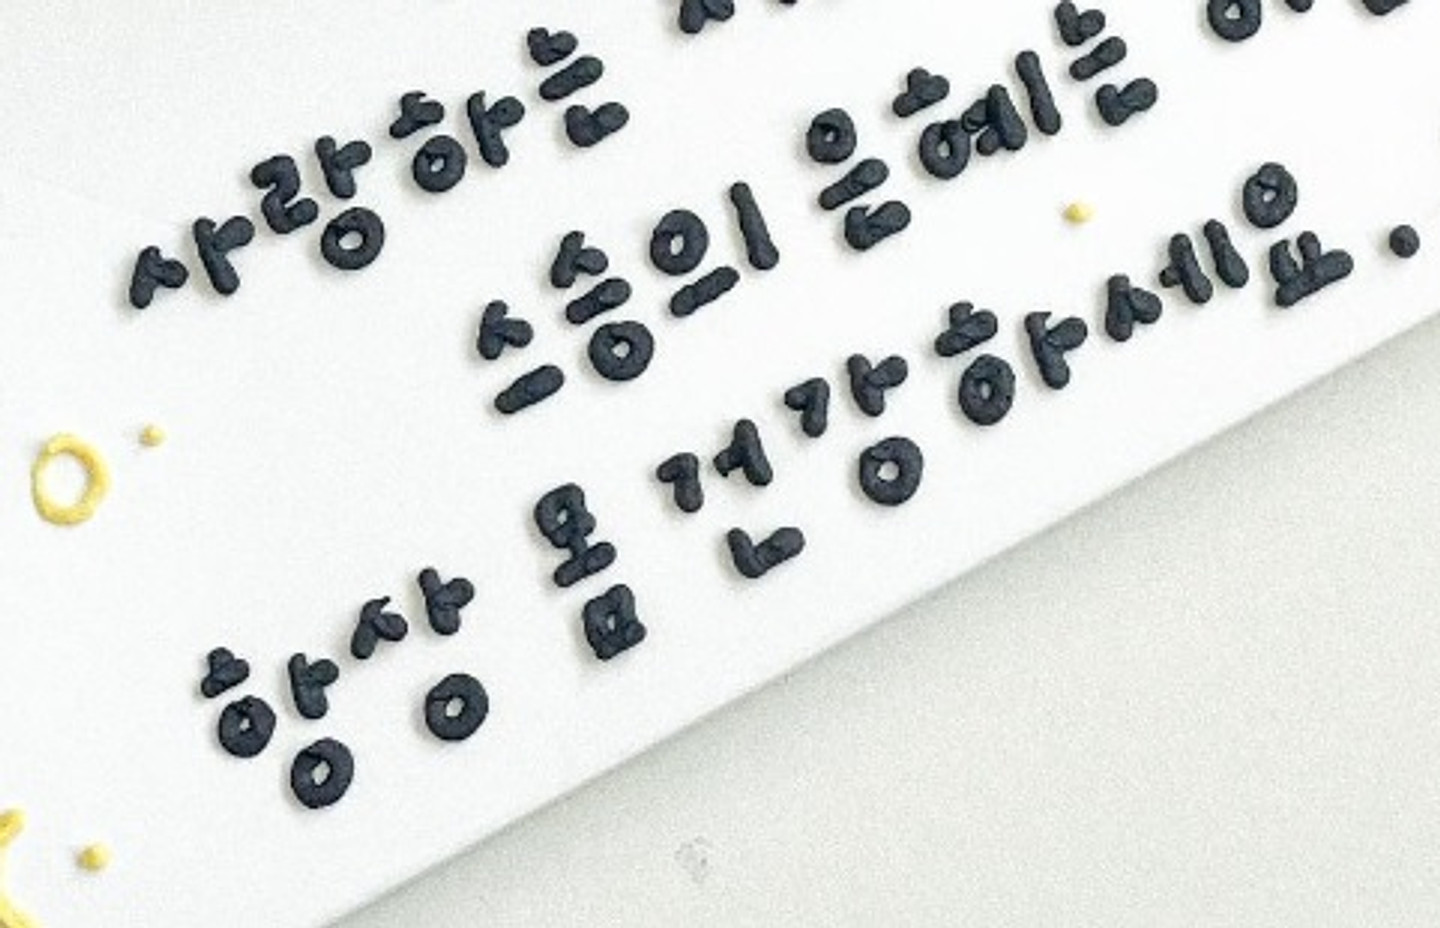 사랑하는
스승의 은혜는
항상 몸 건강하세요.